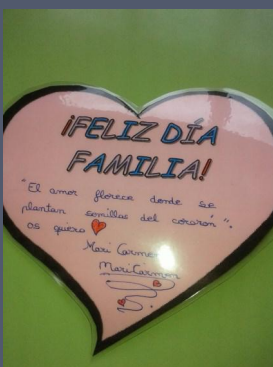 ¡FELIZ DÍA
FAMILIA!
"El amor florece donde se
plantan semillas del corazón".
os quiero
Mari Carmen
Mari Carmen